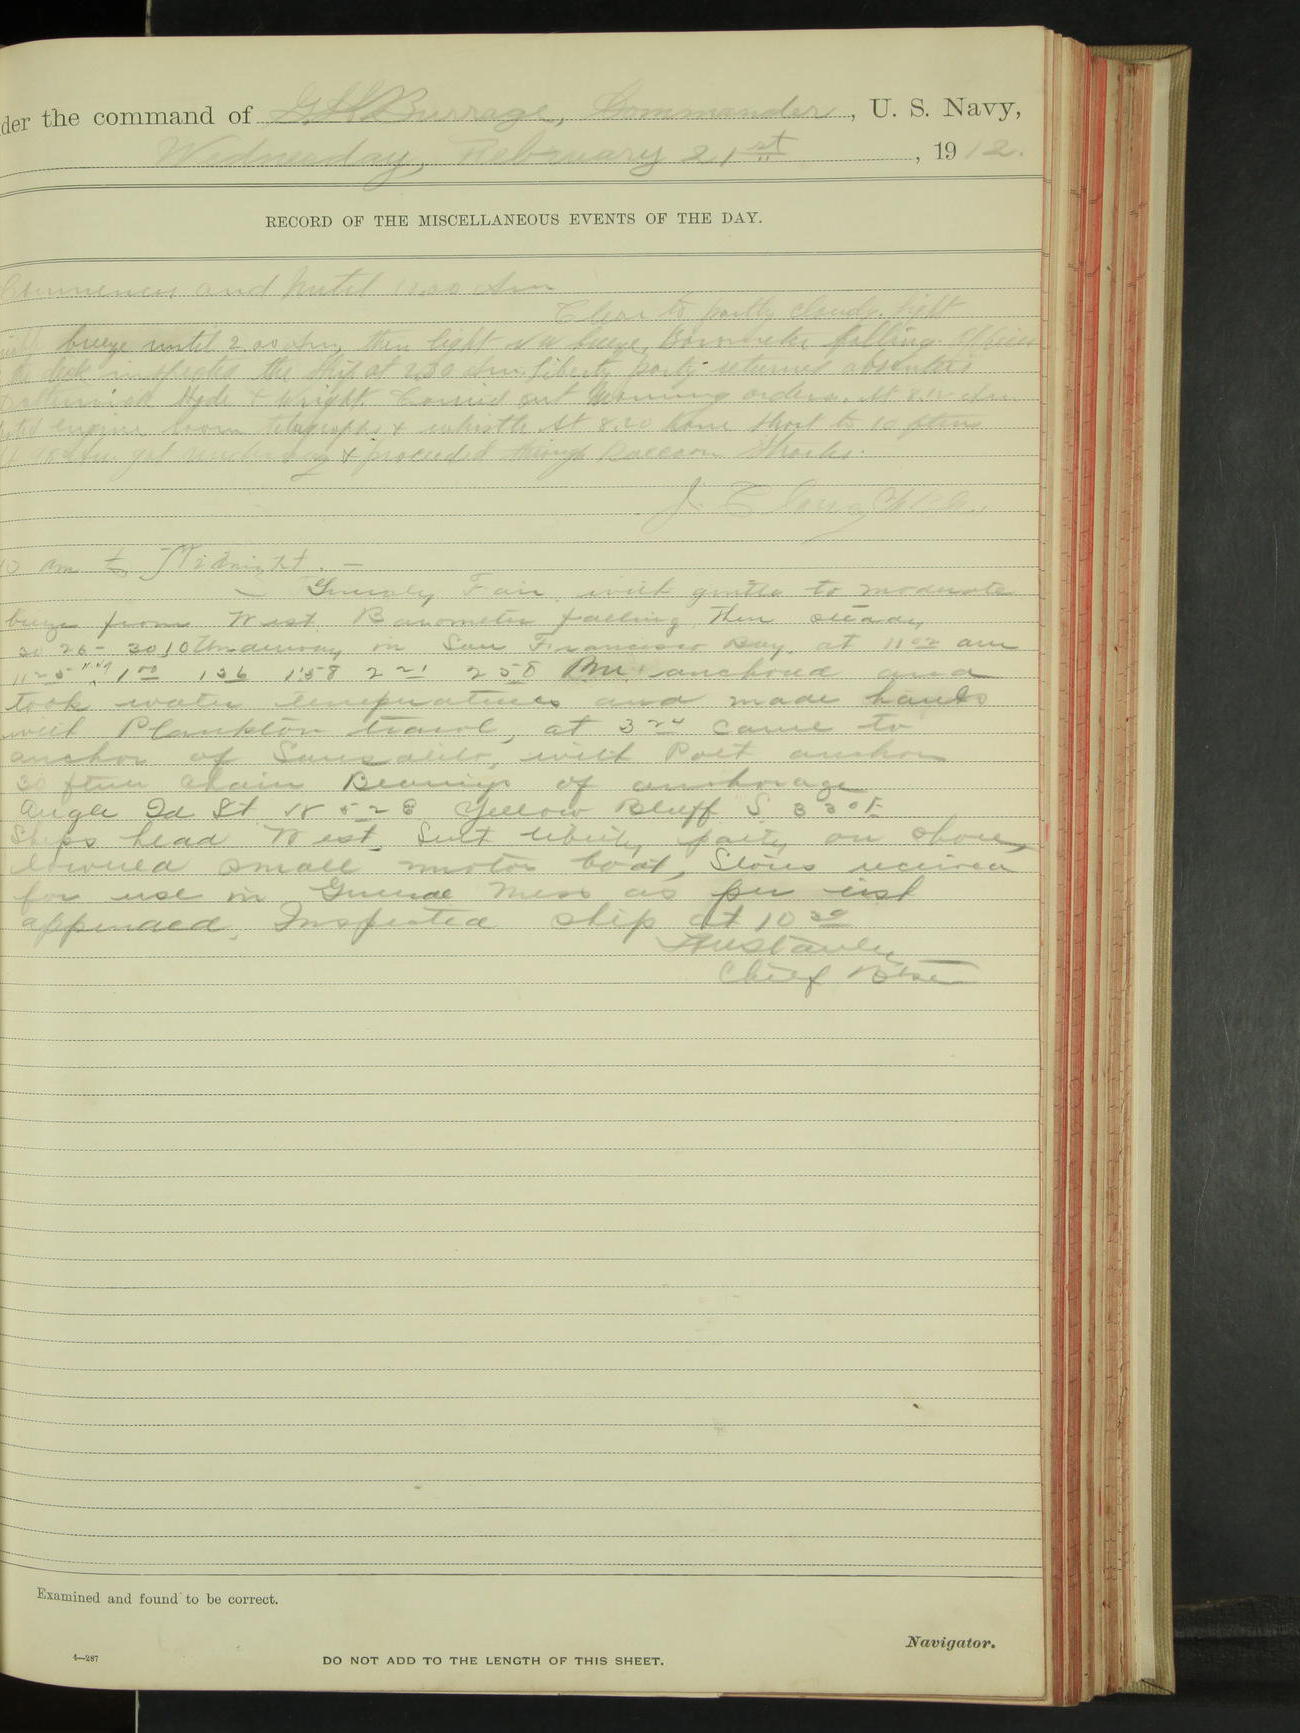 der the command of G H Burrage, Commander, U. S. Navy,
Wednesday, February 21st, 1912.
RECORD OF THE MISCELLANEOUS EVENTS OF THE DAY.
Commences and until 10.00 Am
Clear to partly cloudy, light
breeze until 2.00 Am, then light breeze, Barometer falling.
the deck inspected the ship at 2.30 Am. Liberty party returned absentees
Hyde & Wright. Carried out Morning orders. At 8.15 Am
engine room telegraphs & whistle. At 8.20 hove short to 10 ftms
got underway & proceeded through Raccoon Straits.
J. C.
10 am to Midnight. —
Generaly Fair, with gentle to moderate
breeze from West. Barometer falling then steady
30 26 - 30 10 Underway in San Francisco Bay, at 11 02 am
11 25 1 00 1 36 1 58 2 21 2 58 Pm. anchored and
took water temperatures and made hauls
with Plankton trawl, at 3 came to
anchor of Sausalito, with Port anchor
30 ftms chain Bearings of anchorage
Angle Id Lt N 52 E Yellow Bluff S 33° E
Ships head West, Sent liberty party on shore,
lowered small motor boat, Stores received
for use in General Mess as per list
appended. Inspected ship at 10 30
Chief Btsn
Examined and found to be correct.
Navigator.
4—287
DO NOT ADD TO THE LENGTH OF THIS SHEET.